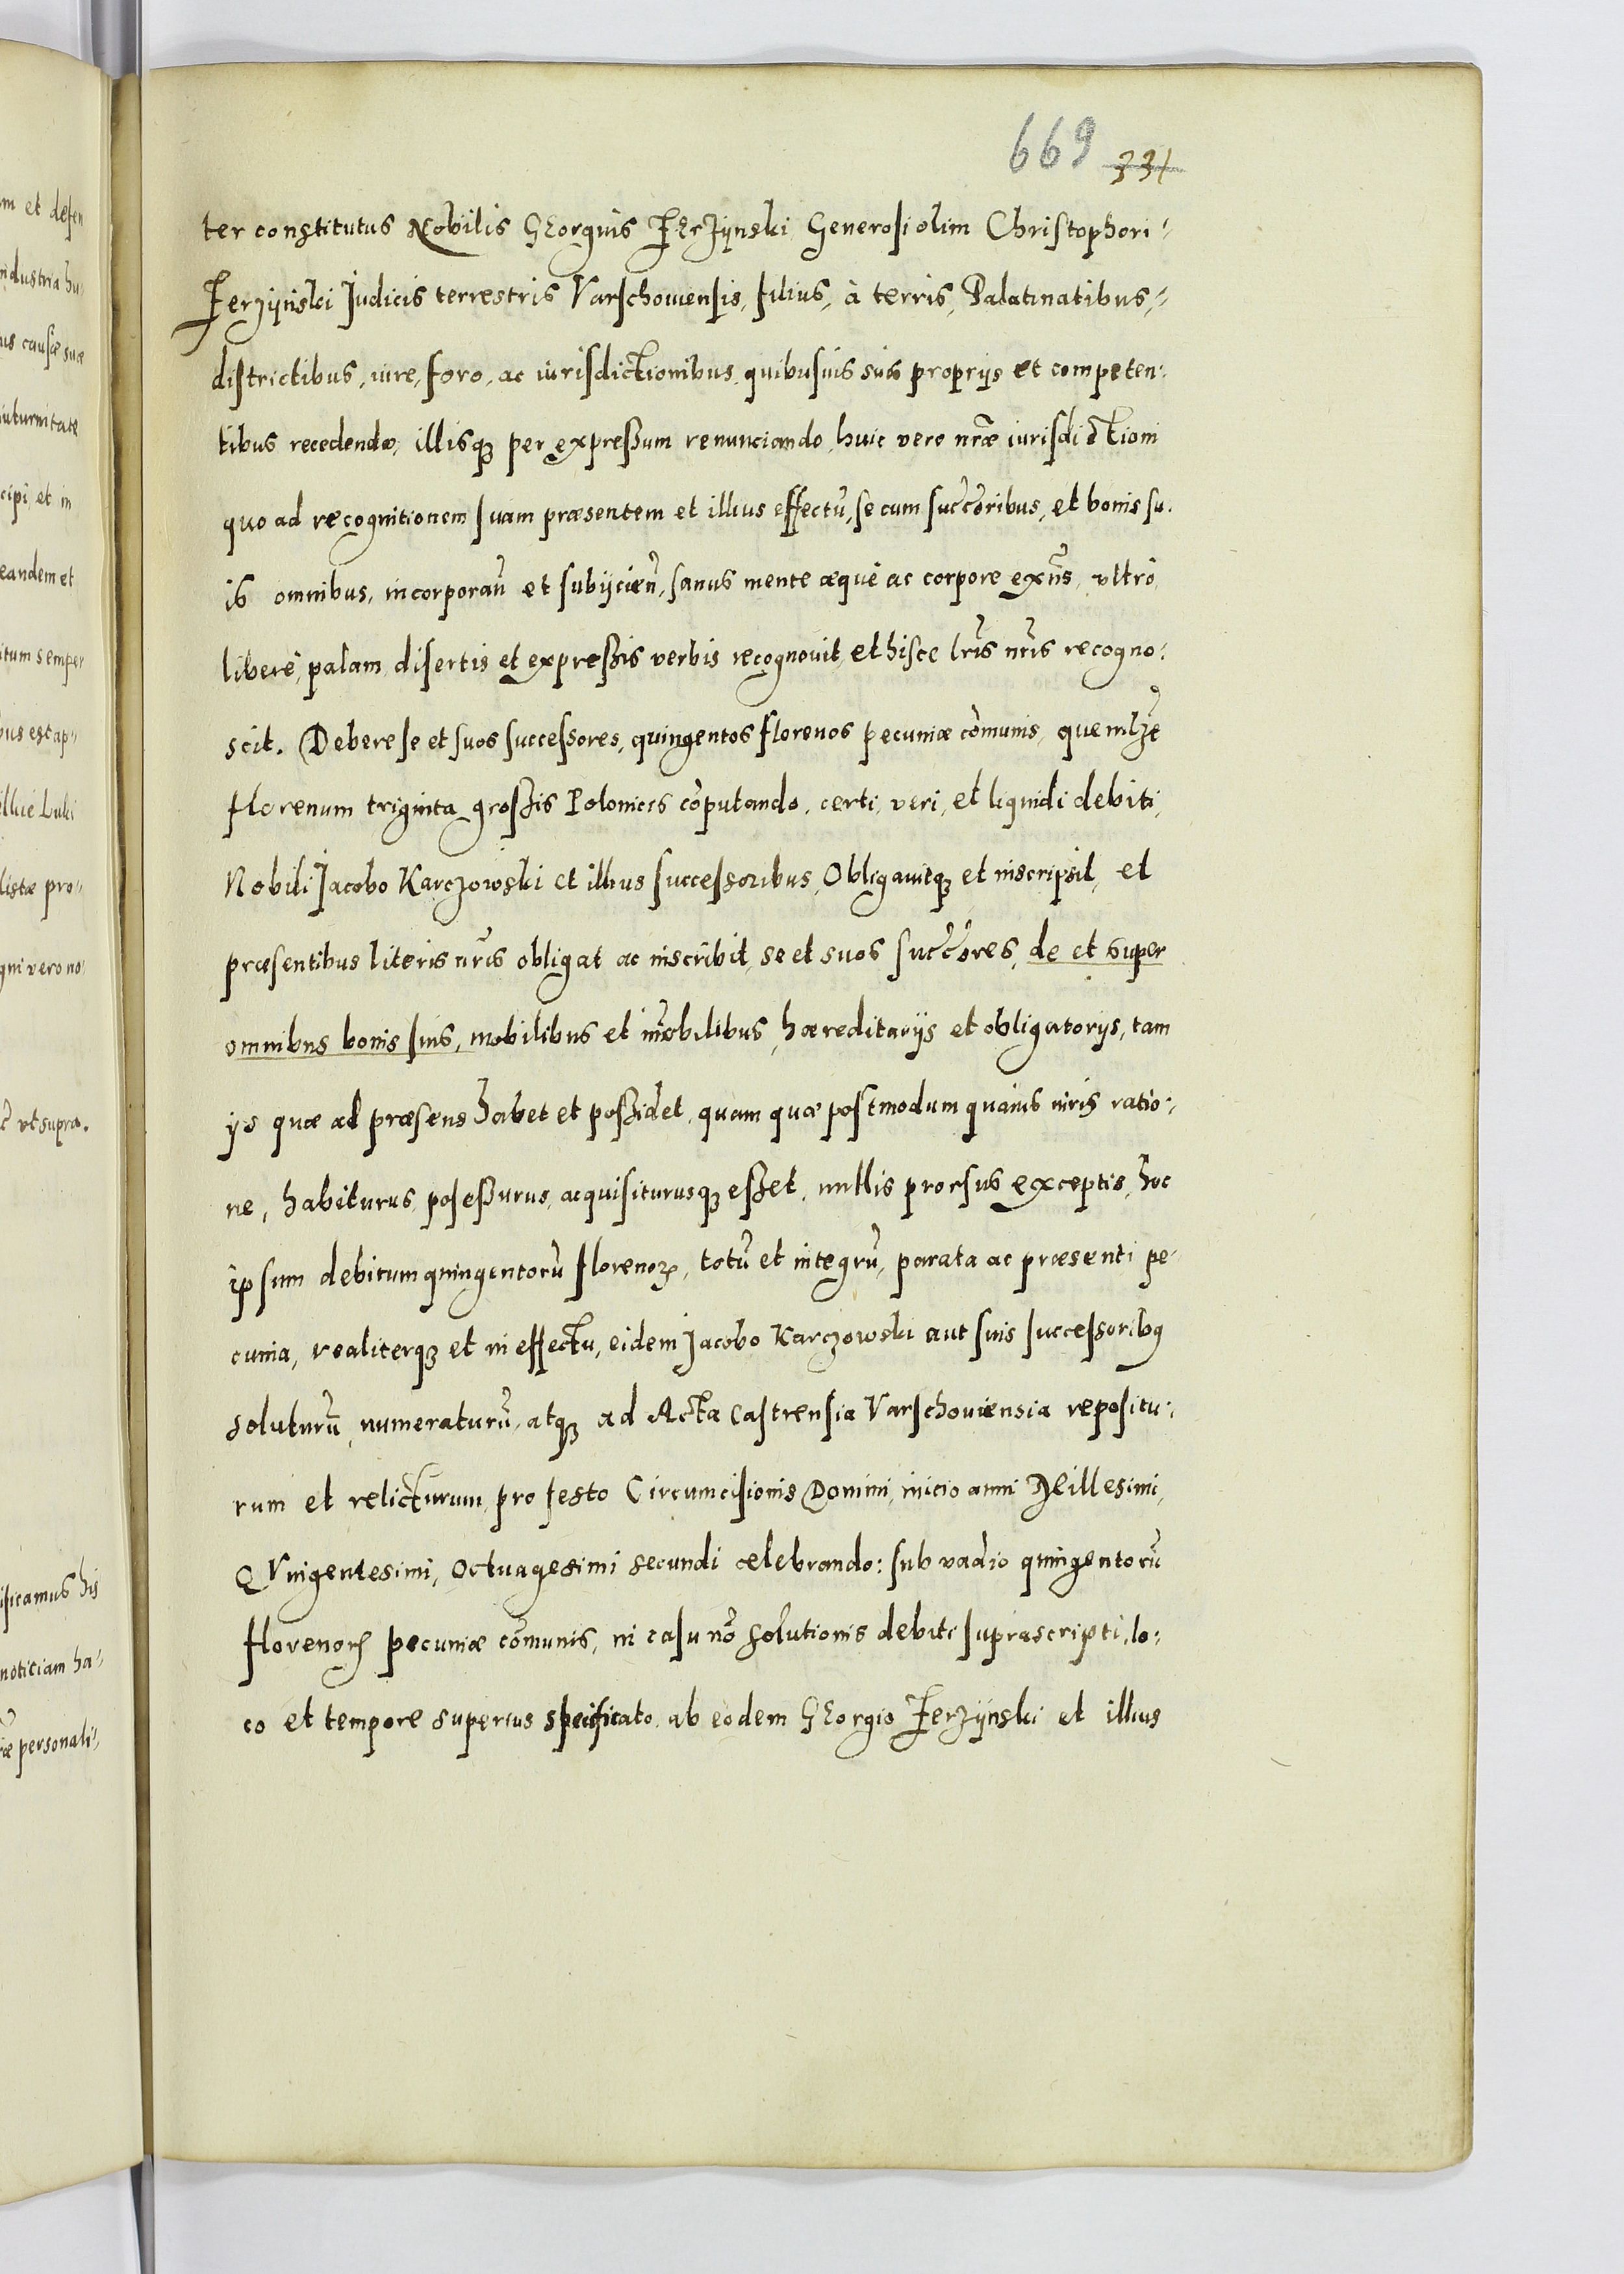 669 331
ter constitutus Nobilis GEorgius JErzÿnski Generosi olim Christophori
Jerzÿnski Judicis terrestris Varschouiensis, filius, à terris, Palatinatibus,
districtibus, iure, foro, ac iurisdictionibus, quibusuis suis proprijs et competen:
tibus recedendo, illisq3 per expreßum renunciando, huic vero nr̃æ iurisdictioni
quo ad recognitionem suam præsentem et illius effectũ, se cum succ̃oribus, et bonis su:
is omnibus, incorporan̄ et subijcien̄, sanus mente æquè ac corpore exñs, vltrò
liberè, palam, disertis et expreßis verbis recognouit, et hisce lr̃is nr̃is recogno:
scit. Debere se et suos successores, quingentos florenos pecuniæ cõmunis, quemlzt
florenum triginta großis Polonicis cõputando, certi, veri, et liquidi debiti,
Nobili Jacobo Karczowski et illius successoribus, Obligauitq3 et inscripsit, et
præsentibus literis nr̃is obligat ac inscribit, se et suos succ̃ores, de et super
omnibus bonis suis, mobilibus et im̃obilibus, hæreditarijs et obligatorijs, tam
ijs quæ ad præsens habet et poßidet, quam quæ postmodum quaius iuris ratio:
ne, habiturus, poseßurus, acquisiturusq3 eßet, nullis prorsus exceptis, hoc
ipsum debitum quingentorũ florenoꝝ, totũ et integrũ, parata ac præsenti pe:
cunia, realiterq3 et in effectu, eidem Jacobo Karczowski aut suis successoribꝰ
soluturũ, numeraturũ, atq3 ad Acta Castrensia Varschouiensia repositu:
rum et relicturum, pro festo Circumcisionis Domini, initio anni Millesimi,
QVuingentesimi, Octuagesimi secundi celebrando: sub vadio quingentorũ
florenoꝝ pecuniæ cõmunis, in casu nõ solutionis debiti suprascripti, lo:
co et tempore superius specificato, ab eodem GEorgio Jerzÿnski et illius